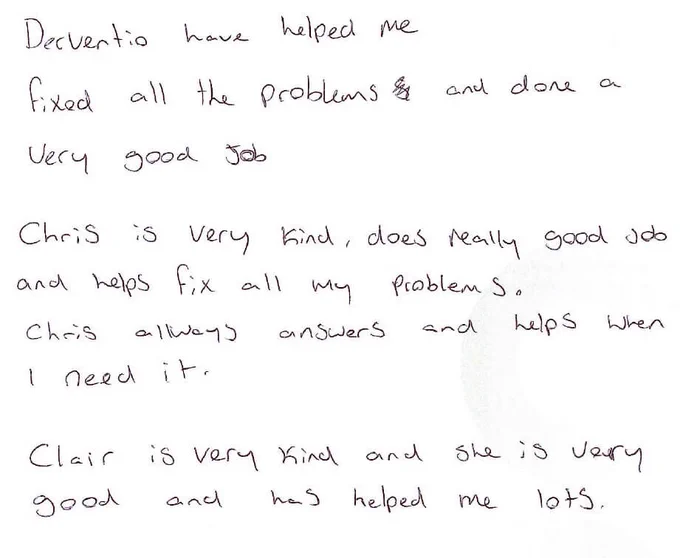 Derventio have helped me
fixed all the problems and done a
very good Job
Chris is very kind, does really good Job
and helps fix all my problems.
Chris allways answers and helps when
I need it.
Clair is very kind and she is very
good and has helped me lots.